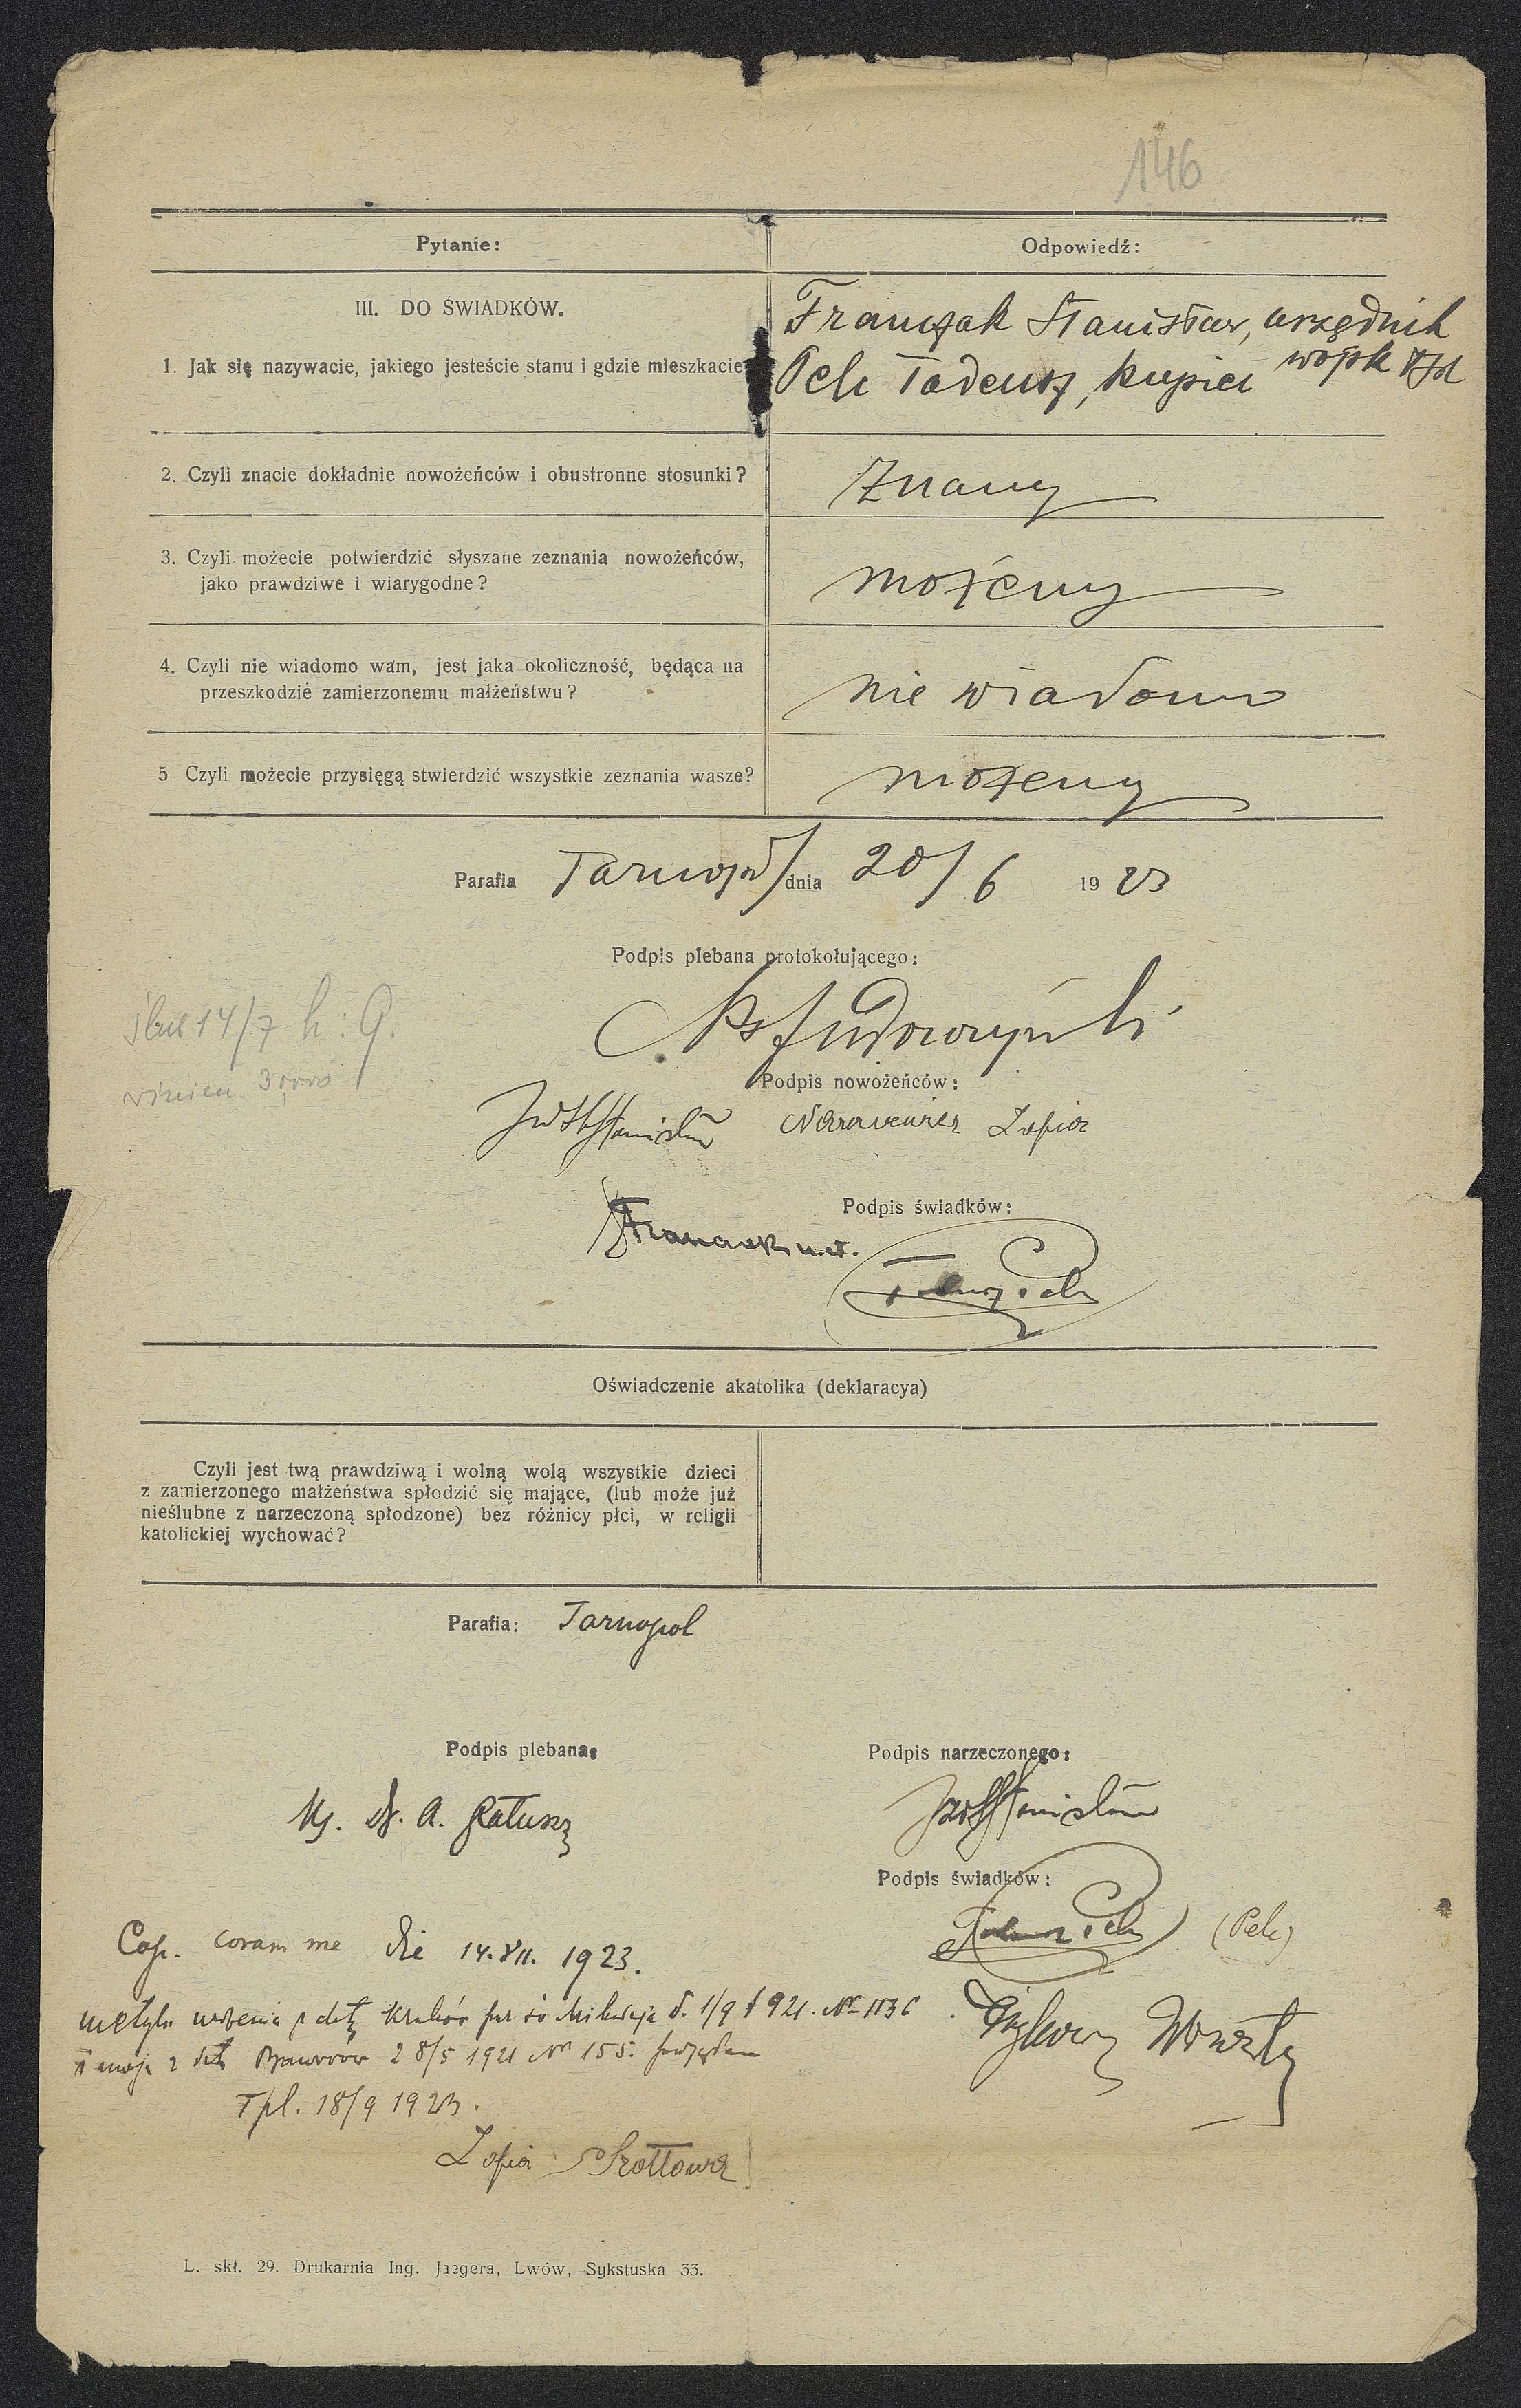 146
Pytanie:
Odpowiedź:
III. DO ŚWIADKÓW.
1. Jak się nazywacie, jakiego jesteście stanu i gdzie mieszkacie
Franczak Stanisław, urzędnik
wojsk
Pelc Tadeusz, kupiec
2. Czyli znacie dokładnie nowożeńców i obustronne stosunki?
Znamy
3. Czyli możecie potwierdzić słyszane zeznania nowożeńców,
jako prawdziwe i wiarygodne?
możemy
4. Czyli nie wiadomo wam, jest jaka okoliczność, będąca na
przeszkodzie zamierzonemu małżeństwu?
nie wiadomo
5. Czyli możecie przysięgą stwierdzić wszystkie zeznania wasze?
możemy
Parafia Tarnopol dnia 20/6 1923
Podpis plebana protokołującego:
ślub 14/7 h: 9.
Podpis nowożeńców:
Stanisław Zofia
Podpis świadków:
Franczak
Oświadczenie akatolika (deklaracya)
Czyli jest twą prawdziwą i wolną wolą wszystkie dzieci
z zamierzonego małżeństwa spłodzić się mające, (lub może już
nieślubne z narzeczoną spłodzone) bez różnicy płci, w religii
katolickiej wychować?
Parafia: Tarnopol
Podpis plebana:
Podpis narzeczonego:
Ks. Dr. A.
Stanisław
Podpis świadków:
(Pelc)
Cop. coram me die 14.VII. 1923.
Kraków d. 1/9 1921. Nr 1136
28/5 1921 Nr 155.
Tpl. 18/9 1923.
Zofia Szottowa
L. skł. 29. Drukarnia Ing. Jaegera, Lwów, Sykstuska 33.